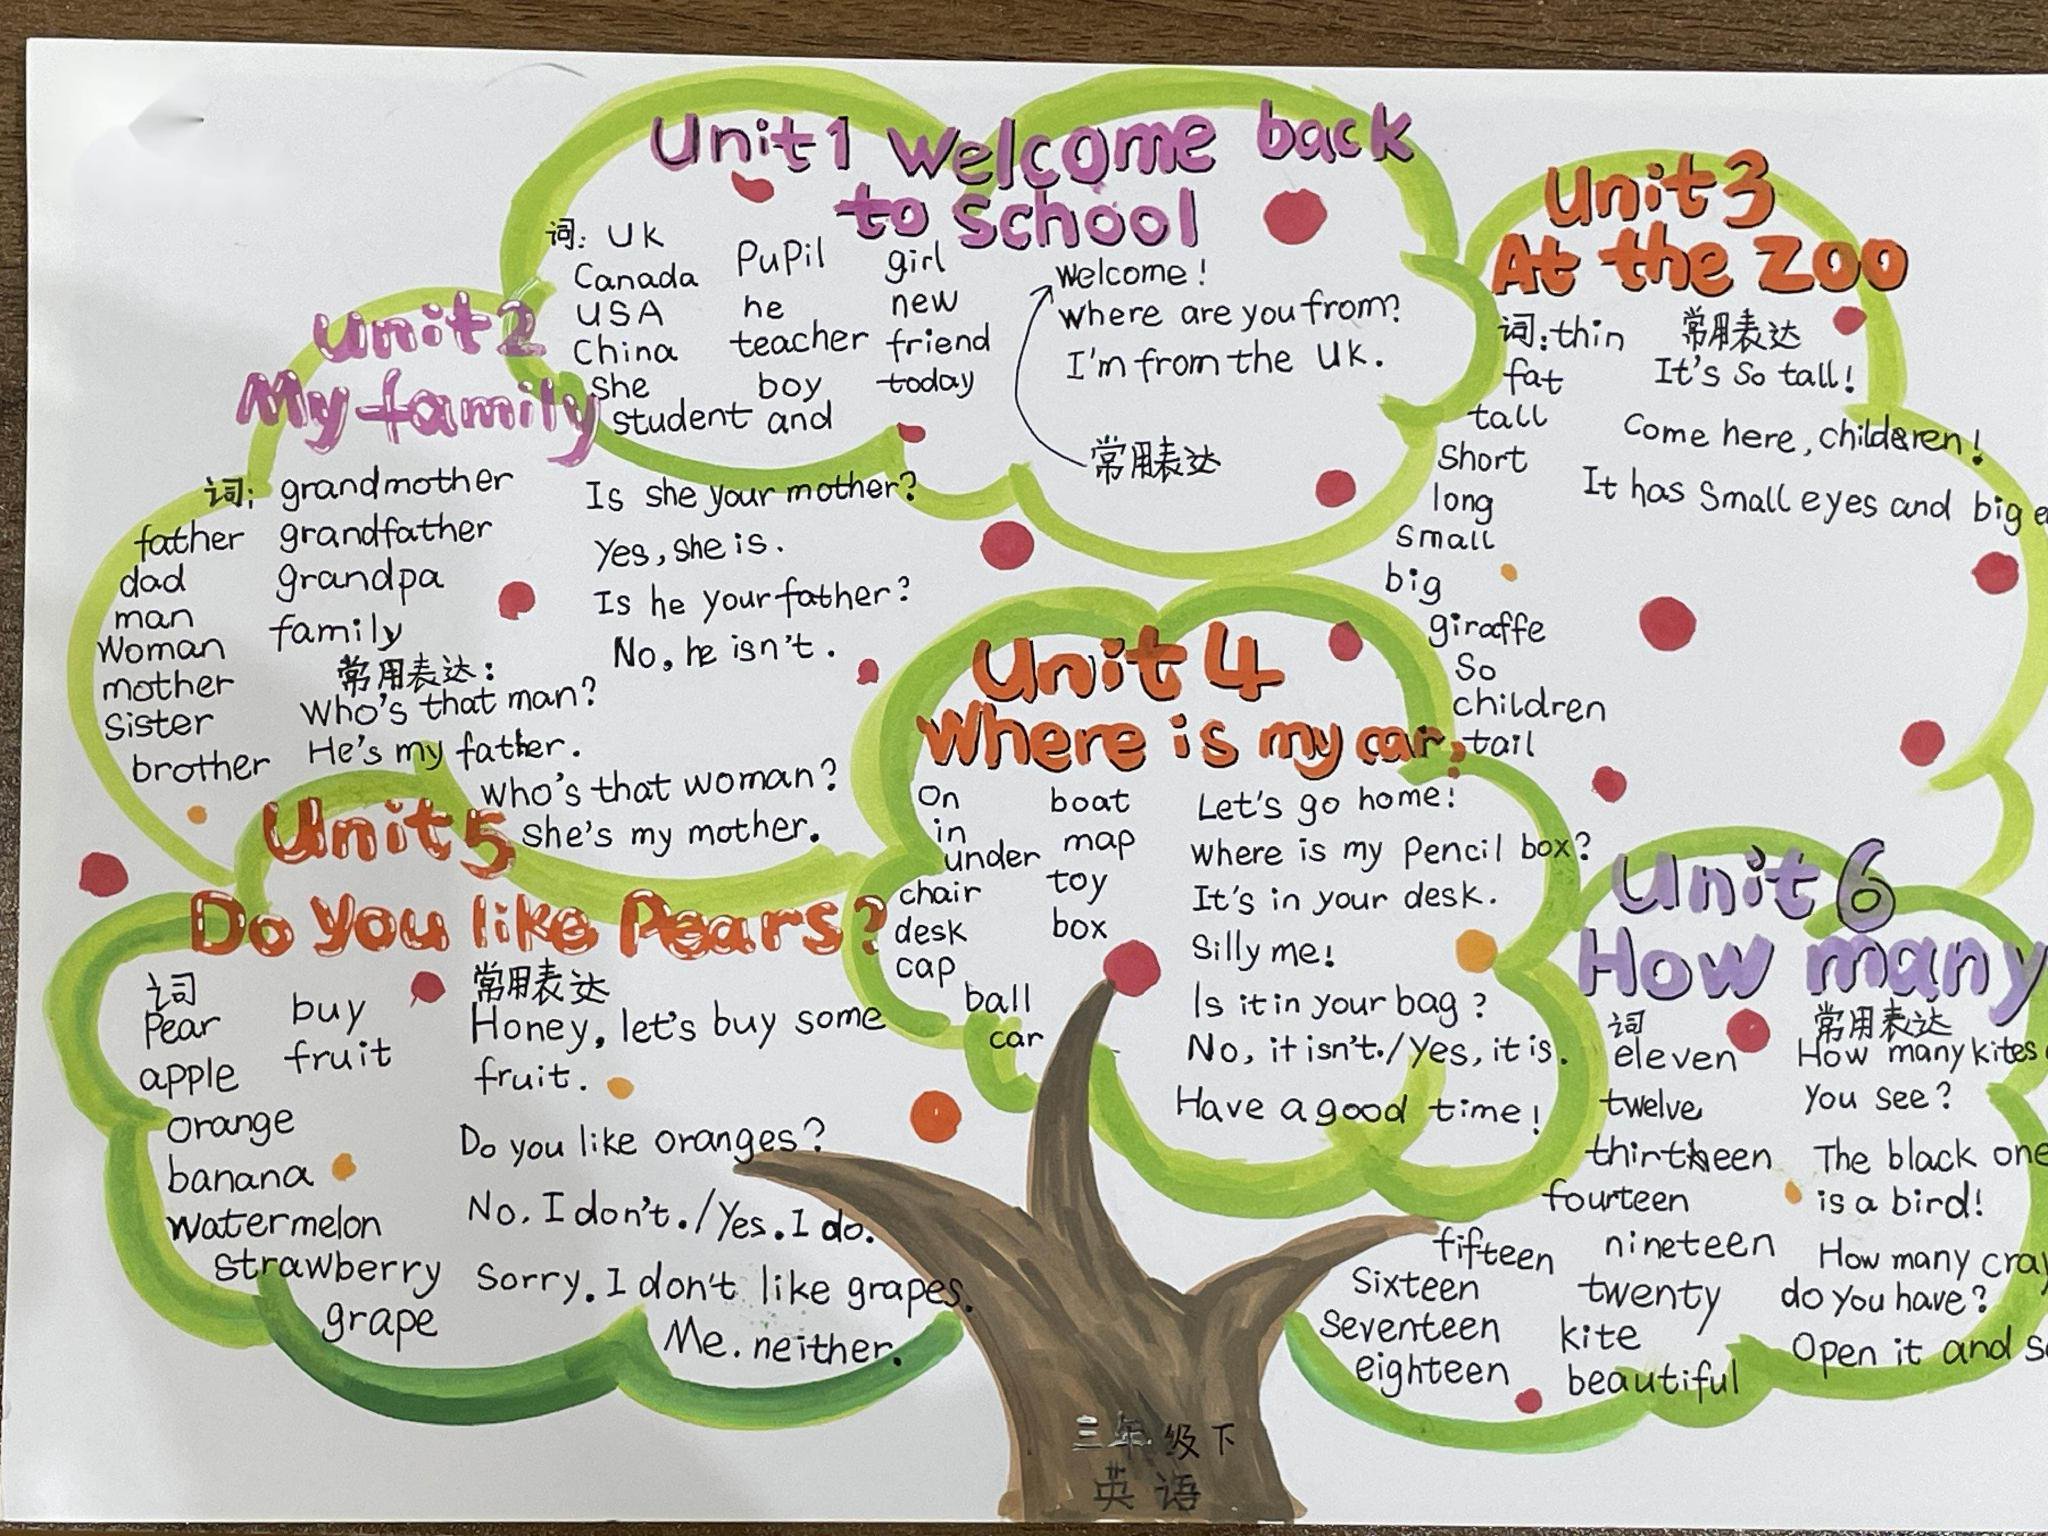 Unit1 Welcome back
to school
词: UK
Canada
USA
China
She
student and
PuPil
he
teacher
boy
girl
new
friend
today
Welcome!
Where are you from?
I'm from the UK.
常用表达
Unit2
My family
词: grandmother
father
dad
man
Woman
mother
Sister
brother
grandfather
grandpa
family
常用表达:
Who's that man?
He's my father.
Who's that woman?
She's my mother.
Is she your mother?
Yes, she is.
Is he your father?
No, he isn't.
Unit3
At the zoo
词: thin
fat
tall
Short
long
Small
big
giraffe
So
children
tail
常用表达
It's So tall!
Come here, children!
It has Small eyes and big
Unit 4
Where is my car,
On
in
under
chair
desk
cap
ball
car
boat
map
toy
box
Let's go home!
Where is my Pencil box?
It's in your desk.
Silly me!
Is it in your bag?
No, it isn't./Yes, it is.
Have a good time!
Unit5
Do you like Pears?
词
Pear
apple
orange
banana
watermelon
strawberry
grape
buy
fruit
常用表达
Honey, let's buy some
fruit.
Do you like oranges?
No, I don't./Yes. I do.
Sorry. I don't like grapes.
Me. neither.
Unit 6
How many
词
eleven
twelve
thirteen
fourteen
fifteen
Sixteen
Seventeen
eighteen
nineteen
twenty
kite
beautiful
常用表达
How many kites
you see?
The black one
is a bird!
How many
do you have?
Open it and
三年级下
英语